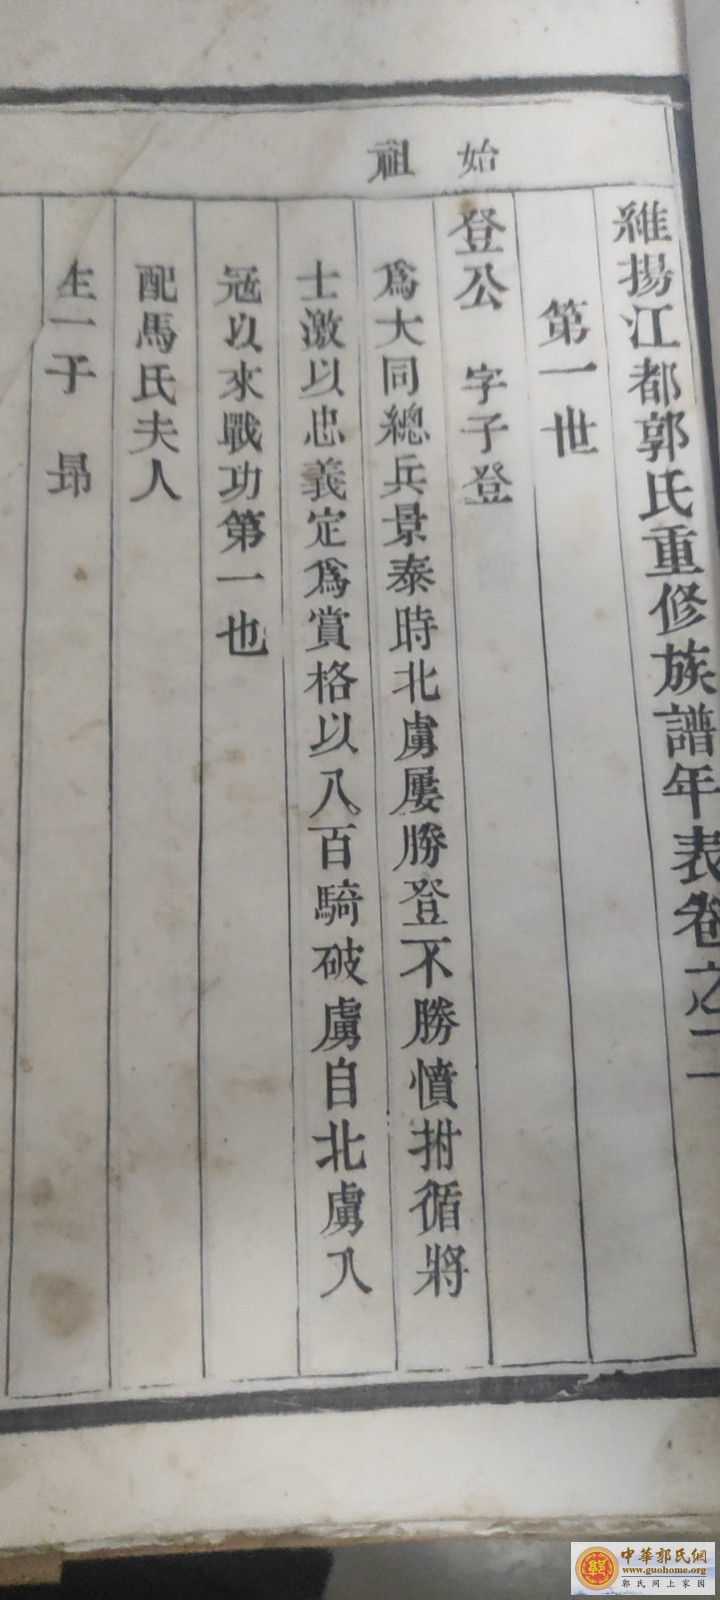 始祖
維揚江都郭氏重修族譜年表卷之二
第一世
登公 字子登
爲大同總兵景泰時北虜屢勝登不勝憤拊循將
士激以忠義定爲賞格以八百騎破虜自北虜入
冦以來戰功第一也
配馬氏夫人
生一子 昻
中華郭氏網
www.guohome.org
郭氏网上家园